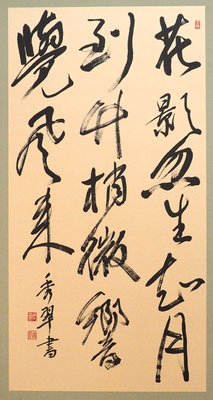 花影忽生知月
到竹梢微響
覺風来 秀翠書